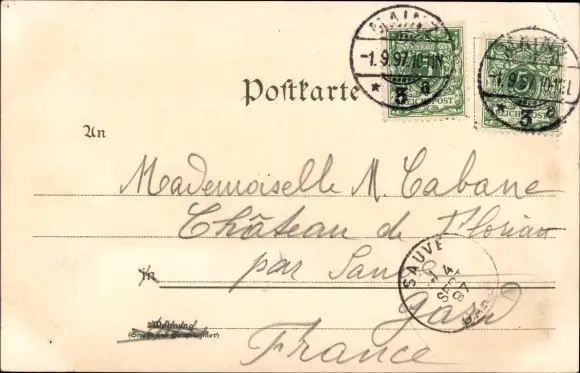 MAINZ
-1.9.97.10-11N.
* 3 a
5
REICHSPOST
MAINZ
-1.9.97.10-11V.
* 3 a
5
REICHSPOST
Postkarte
An
Mademoiselle M. Cabane
Château de Florian
par Sauve
in
SAUVE
4
SEPT
97
Gard
Wohnung
(Straße und Hausnummer)
France